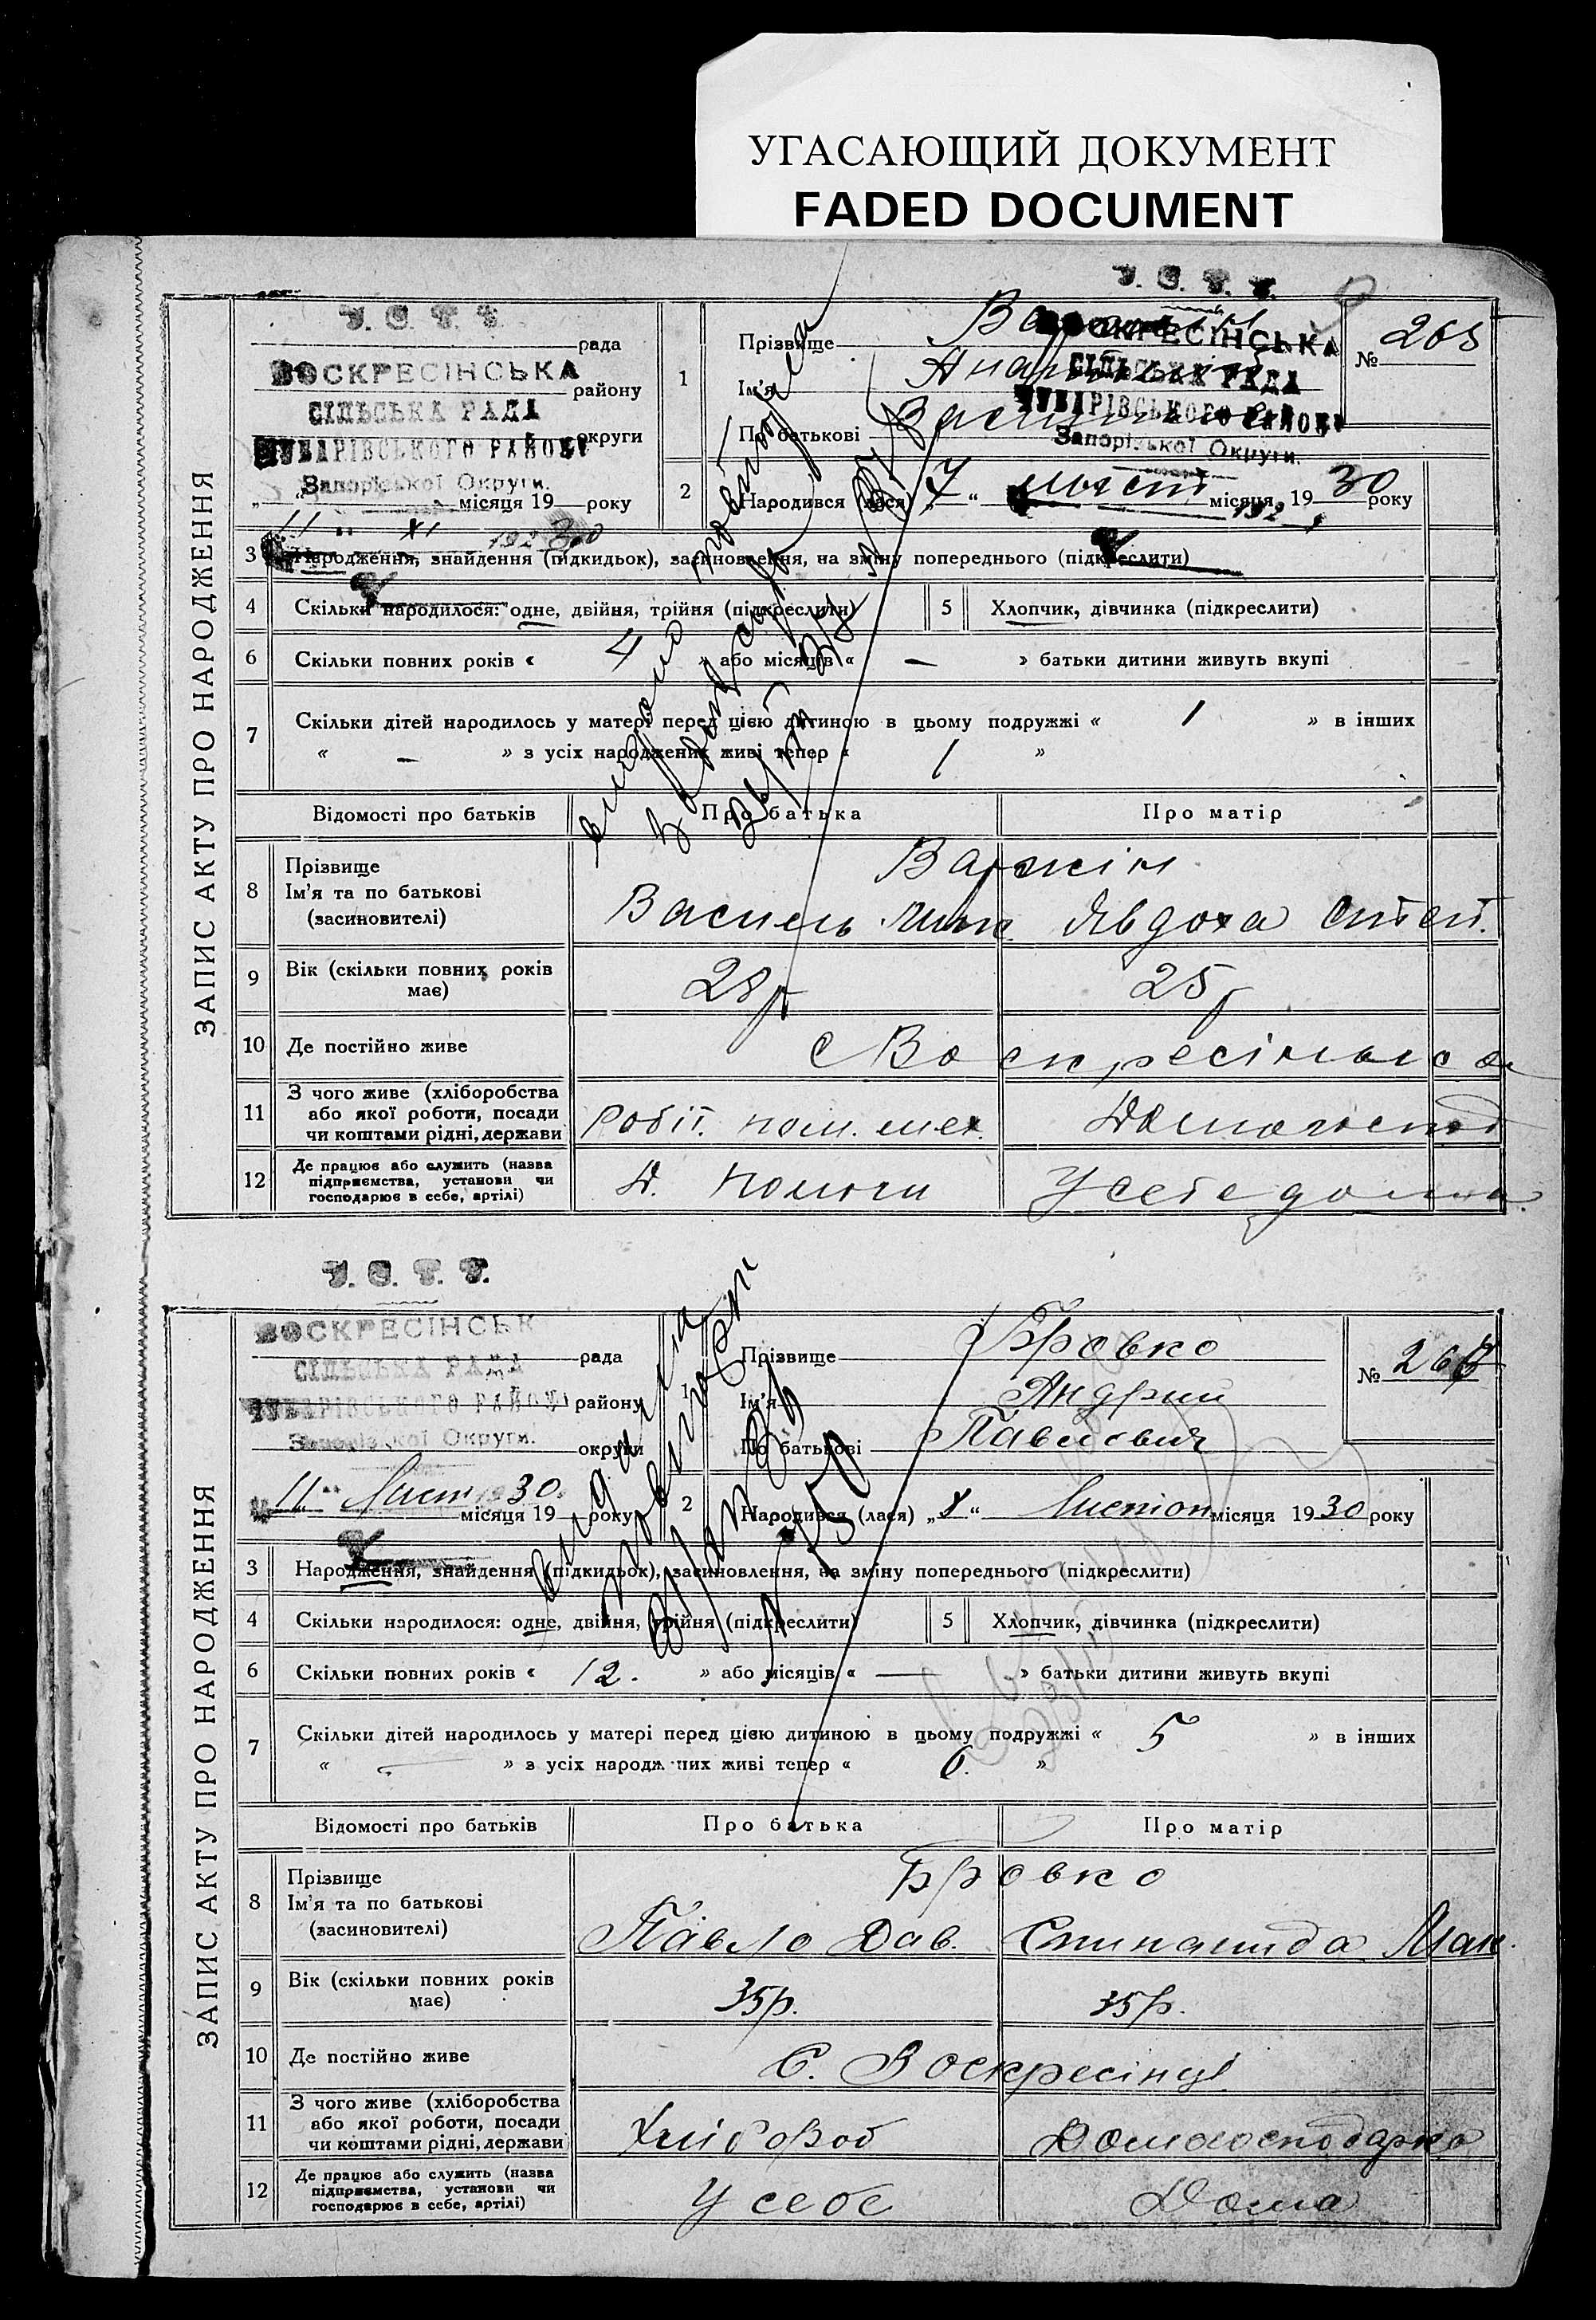 УГАСАЮЩИЙ ДОКУМЕНТ
FADED DOCUMENT
ЗАПИС АКТУ ПРО НАРОДЖЕННЯ
У. С. Р. Р.
рада
ВОСКРЕСІНСЬКА
району
СІЛЬСЬКА РАДА
округи
ЧУБАРІВСЬКОГО РАЙОНУ
Запорізької Округи.
місяця 19 року
11 XI 1930
У. С. Р. Р.
ВОСКРЕСІНСЬКА
СІЛЬСЬКА РАДА
ЧУБАРІВСЬКОГО РАЙОНУ
Запорізької Округи.
1
Прізвище
Ім'я
По батькові
№ 265
2 Народився (лася) „7“ місяця 1930 року
3 Народження, знайдення (підкидьок), засиновлення, на зміну попереднього (підкреслити)
4 Скільки народилося: одне, двійня, трійня (підкреслити) 5 Хлопчик, дівчинка (підкреслити)
6 Скільки повних років « 4 » або місяців « — » батьки дитини живуть вкупі
7 Скільки дітей народилось у матері перед цією дитиною в цьому подружжі « 1 » в інших
« — » з усіх народжених живі тепер « 1 »
Відомості про батьків Про батька Про матір
8 Прізвище
Ім'я та по батькові
(засиновителі)
Василь Явдоха Степ.
9 Вік (скільки повних років має) 28р 25р
10 Де постійно живе с Воскресінська
11 З чого живе (хліборобства або якої роботи, посади чи коштами рідні, держави робіт.
12 Де працює або служить (назва підприємства, установи чи господарює в себе, артілі) У себе дома
ЗАПИС АКТУ ПРО НАРОДЖЕННЯ
У. С. Р. Р.
ВОСКРЕСІНСЬК
рада
СІЛЬСЬКА РАДА
ЧУБАРІВСЬКОГО РАЙОНУ району
Запорізької Округи.
округи
„11“ Лист 30.
місяця 19 року
1
Прізвище Бровко
Ім'я Андрий
По батькові Павлович
№ 266
2 Народився (лася) „8“ Листоп місяця 1930 року
3 Народження, знайдення (підкидьок), засиновлення, на зміну попереднього (підкреслити)
4 Скільки народилося: одне, двійня, трійня (підкреслити) 5 Хлопчик, дівчинка (підкреслити)
6 Скільки повних років « 12. » або місяців « — » батьки дитини живуть вкупі
7 Скільки дітей народилось у матері перед цією дитиною в цьому подружжі « 5 » в інших
« — » з усіх народжених живі тепер « 6. »
Відомості про батьків Про батька Про матір
8 Прізвище
Ім'я та по батькові
(засиновителі)
Бровко
Павло Дав.
9 Вік (скільки повних років має) 35р. 35р.
10 Де постійно живе С. Воскресінці
11 З чого живе (хліборобства або якої роботи, посади чи коштами рідні, держави Хлібороб Домогосподарка
12 Де працює або служить (назва підприємства, установи чи господарює в себе, артілі) У себе Дома